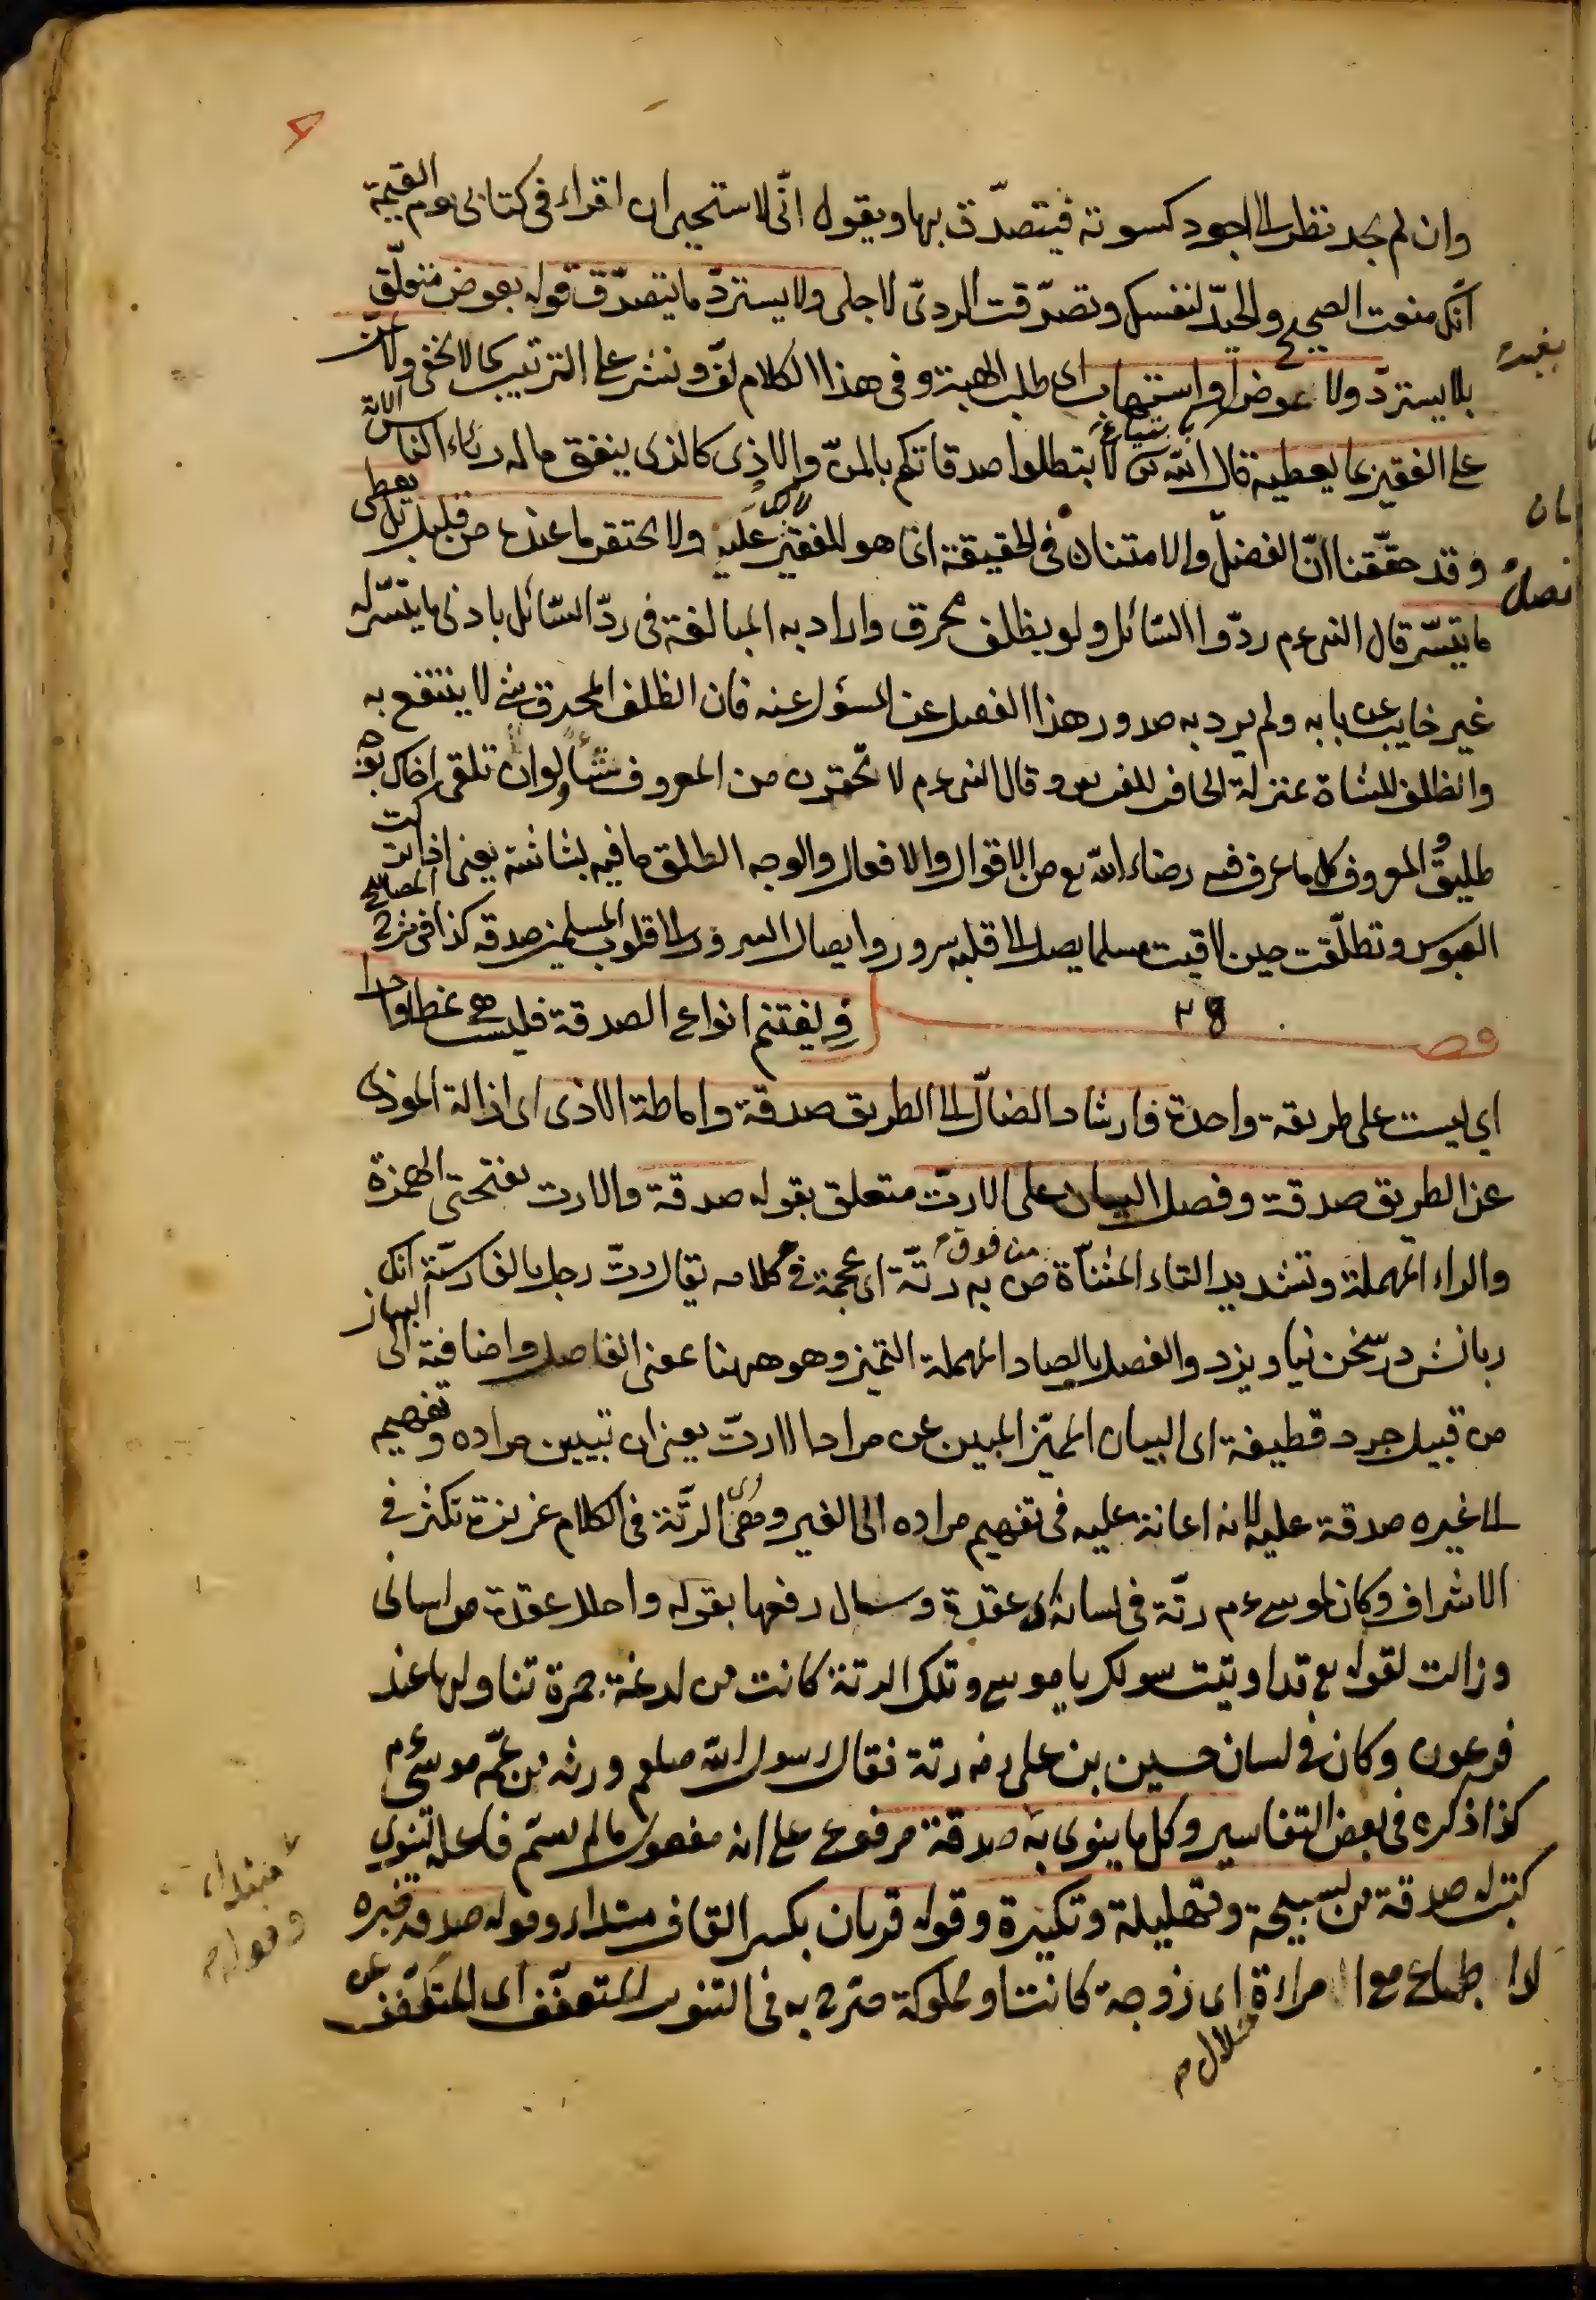 وان لم يجد نظر الى اجود كسوته فيتصدّق بها ويقول انّى لاستحيى ان اقراء فى كتابى يوم القيمة
انّك منعت الصحيح والجيّد لنفسك وتصدّقت الردىّ لاجلى ولا يستردّ ما يتصدّق قوله بعوض متعلّق
بلا يستردّ ولا عوض او استيهاب اى طلب الهبة وفى هذا الكلام لفّ ونشر على الترتيب كما لا يخفى ولا يمنّ
على الفقير بما يعطيه قال الله تع لا تبطلوا صدقاتكم بالمنّ والاذى كالذى ينفق ماله رئاء الناس الاية
وقد حقّقنا انّ الفضل والامتنان فى الحقيقة انما هو للفقير عليه ولا يحتقر ما عنده من قليل بل يعطى
ما تيسّر قال النبى ءم ردّوا السّائل ولو بظلف محرق واراد به المبالغة فى ردّ السّائل بادنى ما يتيسّر له
غير خايب عن بابه ولم يرد به صدور هذا الفعل عن المسؤل عنه فان الظلف المحرق شئ لا ينتفع به
والظلف للشاة بمنزلة الحافر للفرس وقال النبى ءم لا تحقرن من المعروف شيأ ولو ان تلقى اخاك بوجه
طليق المعروف كل ما عرف فيه رضاء الله تع من الاقوال والافعال والوجه الطلق ما فيه بشاشة يعنى اذا تركت
العبوس وتطلّقت حين لاقيت مسلما يصل الى قلبه سرور وايصال السرور الى قلوب المسلمين صدقه كذا فى شرح المصابيح
فصـ ويغتنم انواع الصدقة فليست هى نمطا واحدا
اي ليست على طريقة واحدة فارشاد الضالّ الى الطريق صدقة واماطة الاذى اى ازالة الموذى
عن الطريق صدقة وفصل البيان على الارتّ متعلق بقوله صدقة والارت بفتحتى الهمزة
والراء المهملة وتشديد التاء المثنّاة من فوق من به رتّة اى عجمة فى كلامه يقال رتّ رجل بالفارسيّة انكه
زبانش در سخن نياويزد والفصل بالصاد المهملة التميز وهو ههنا بمعنى الفاصل واضافته الى البيان
من قبيل جرد قطيفة اى البيان المميّز المبين عن مراد الارتّ يعنى ان تبيين مراده وتفهيمه
الى غيره صدقة عليه لانه اعانة عليه فى تفهيم مراده الى الغير ومعنى الرتّة فى الكلام غريزة تكثر فى
الاشراف وكان لموسى ءم رتّة فى لسانه اى عقدة وسال رفعها بقوله واحلل عقدة من لسانى
وزالت لقوله تع قد اوتيت سولك يا موسى وتلك الرتة كانت من لدغة جمرة تناولها عند
فرعون وكان فى لسان حسين بن على رض رتة فقال رسول الله صلعم ورثه من عمّه موسى ءم
كذا ذكره فى بعض التفاسير وكل ما ينوى به صدقة مرفوع على انه مفعول ما لم يسمّ فاعله لينوى
كتب له صدقة من تسبيحة وتهليلة وتكبيرة وقوله قربان بكسر القاف مبتداء وقوله صدقه خبره
اى جماع مع امراءة اى زوجة كانت او مملوكة صرح به فى التنوير للتعفّف اى للتكفّف عن